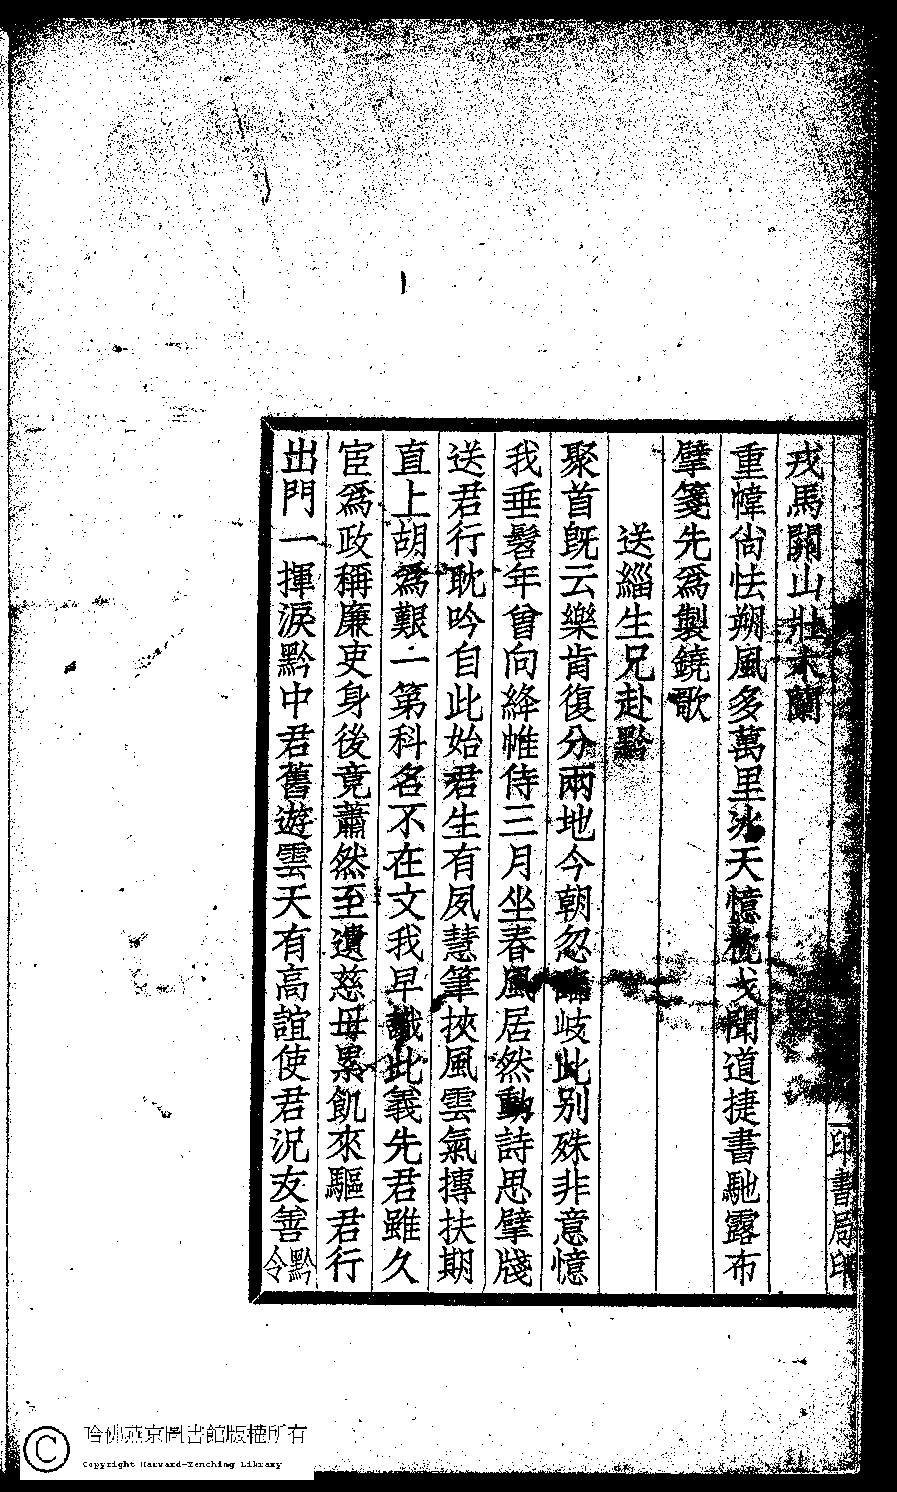 戎馬關山壯木蘭
重幃尙怯朔風多萬里冰天憶枕戈聞道捷書馳露布
擘箋先爲製鐃歌
送緇生兄赴黔
聚首旣云樂肯復分兩地今朝忽臨岐此別殊非意憶
我垂髫年曾向絳帷侍三月坐春風居然動詩思擘牋
送君行耽吟自此始君生有夙慧筆挾風雲氣摶扶期
直上胡爲艱一第科名不在文我早識此義先君雖久
宦爲政稱廉吏身後竟蕭然至遺慈母累飢來驅君行
出門一揮淚黔中君舊遊雲天有高誼使君況友善黔令
印書局印
哈佛燕京圖書館版權所有
Copyright Harvard-Yenching Library